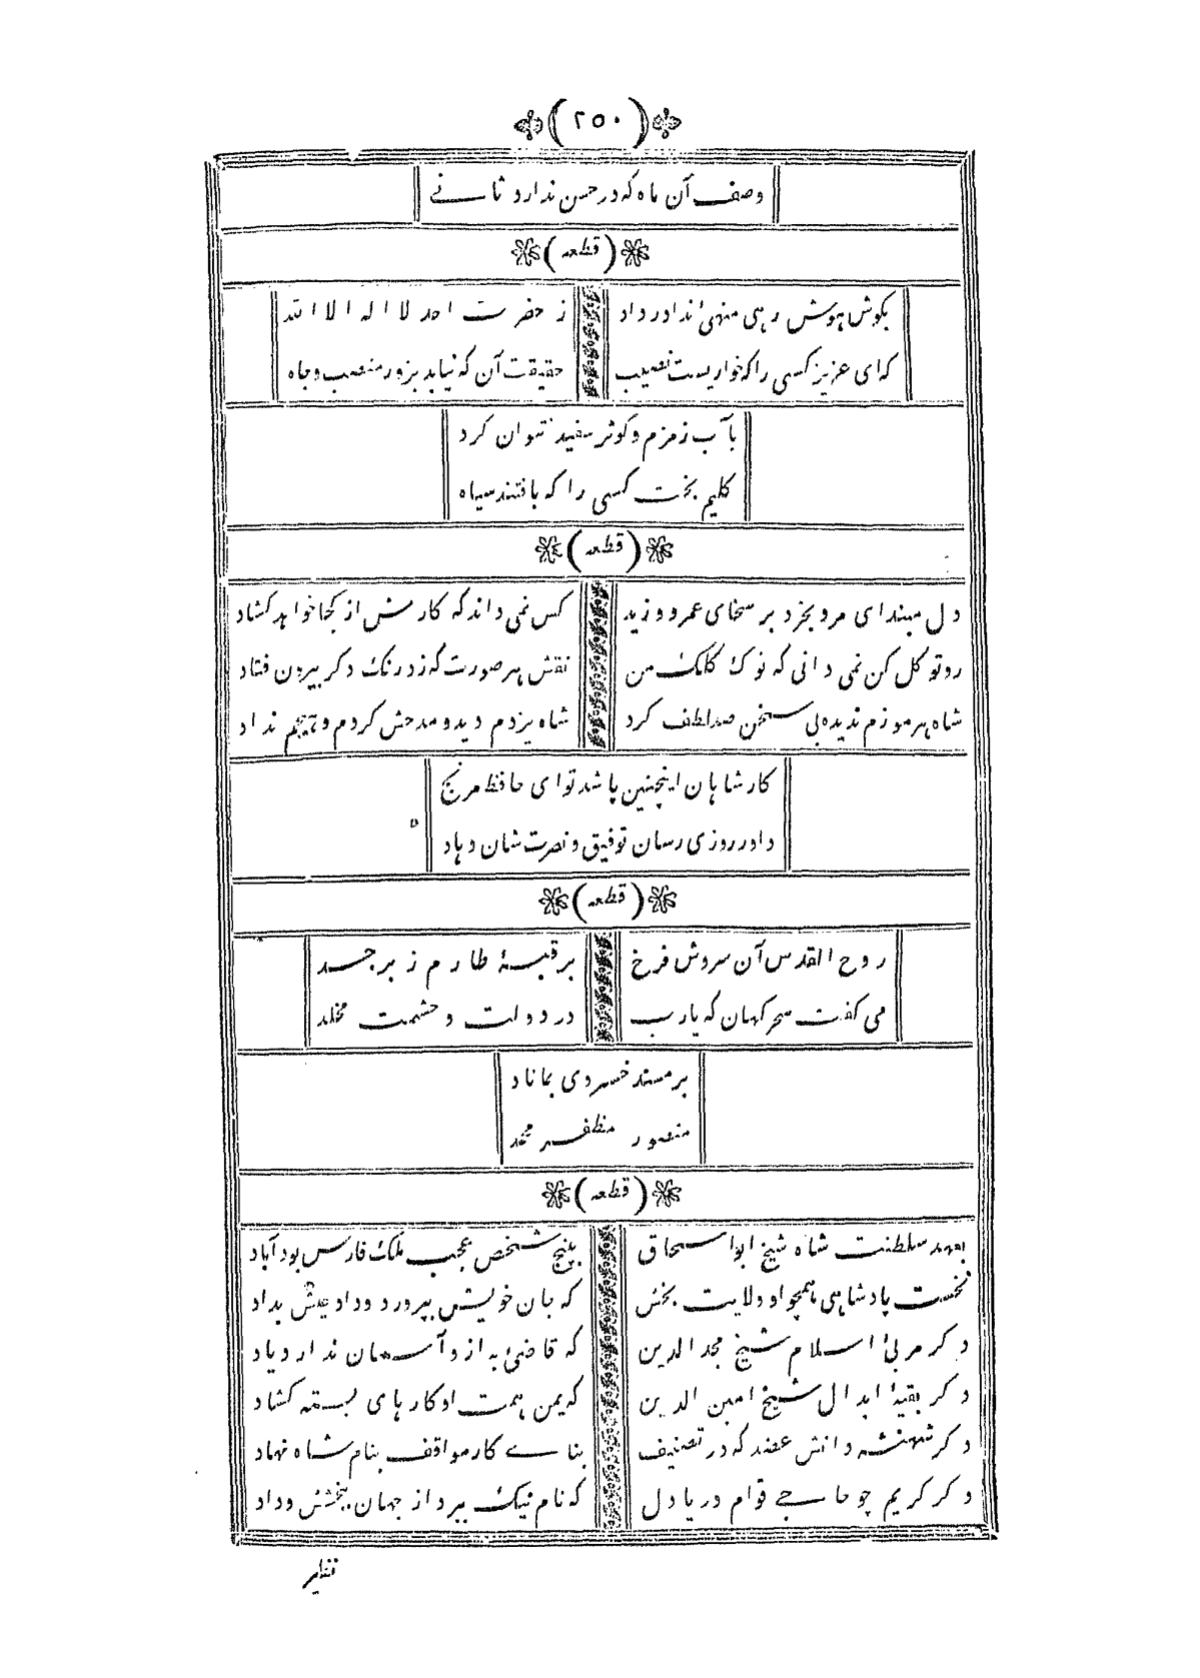 (۲۵۰)
وصف آن ماه که در حسن ندارد ثانے
(قطعه)
بکوش هوش رهی منهئ ندا در داد ز حضرت احد لا اله الا الله
که ای عزیز کسی را که خواریست نصیب حقیقت آن که نیابد بزور منصب و جاه
بآب زمزم و کوثر سفید نتوان کرد
کلیم بخت کسی را که بافتند سیاه
(قطعه)
دل مبند ای مرد بخرد بر سخای عمرو و زید کس نمی داند که کارش از کجا خواهد کشاد
رو توکل کن نمی دانی که نوک کلک من نقش هر صورت که زد رنک دکر بیرون فتاد
شاه هرموزم ندید و بی سخن صد لطف کرد شاه یزدم دید و مدحش کردم و هیچم نداد
کار شاهان اینچنین باشد تو ای حافظ مرنج
داور روزی رسان توفیق و نصرت شان دهاد
(قطعه)
روح القدس آن سروش فرخ بر قبهٔ طارم زبرجد
می کفت سحر کهان که یارب در دولت و حشمت مخلد
بر مسند خسروی بماناد
منصور مظفر محمد
(قطعه)
بعهد سلطنت شاه شیخ ابو اسحاق بپنج شخص عجب ملک فارس بود آباد
نخست پادشاهی همچو او ولایت بخش که جان خویش بپرورد و داد عیش بداد
دکر مربئ اسلام شیخ مجد الدین که قاضئ به ازو آسمان ندارد یاد
دکر بقیهٔ ابدال شیخ امین الدین که یمن همت او کارهای بسته کشاد
دکر شهنشه دانش عضد که در تصنیف بناے کار مواقف بنام شاه نهاد
دکر کریم چو حاجے قوام دریا دل که نام نیک ببرد از جهان ببخشش و داد
نظیر